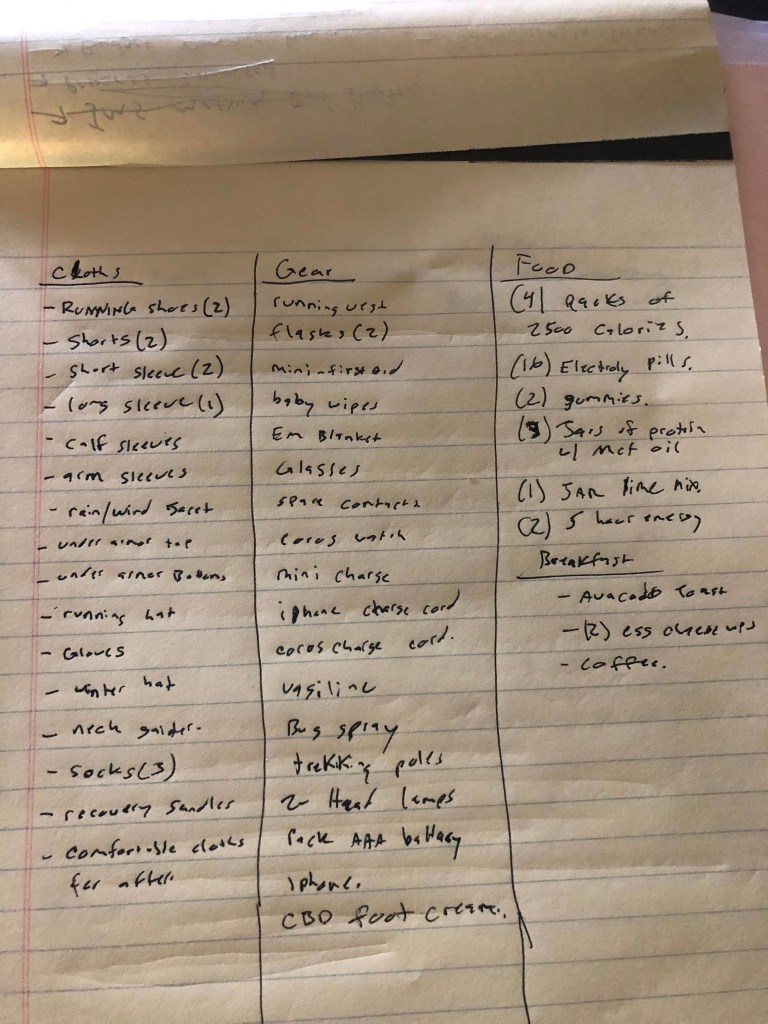 Cloths
- RUNNING shoes (2)
- Shorts (2)
- Short sleeve (2)
- long sleeve (1)
- calf sleeves
- arm sleeves
- rain/wind
- under armor top
- under armor Bottoms
- running hat
- Gloves
- winter hat
- neck gaider.
- socks (3)
- recovery sandles
- comfortable cloths
for after.
Gear
running vest
flasks (2)
mini-first aid
baby wipes
Em Blanket
Glasses
spare contacts
Coros watch
mini charge
iphone charge cord
coros charge cord.
vasiline
Bug spray
trekking poles
2 Head lamps
Pack AAA battery
iphone.
CBD foot creame.
FOOD
(4) packs of
2500 calories.
(16) Electroly pills.
(2) gummies.
Jars of protein
w/ mct oil
(1) JAR
(2) 5 hour energy
Breakfast
- Avacado toast
- (2) egg
- coffee.